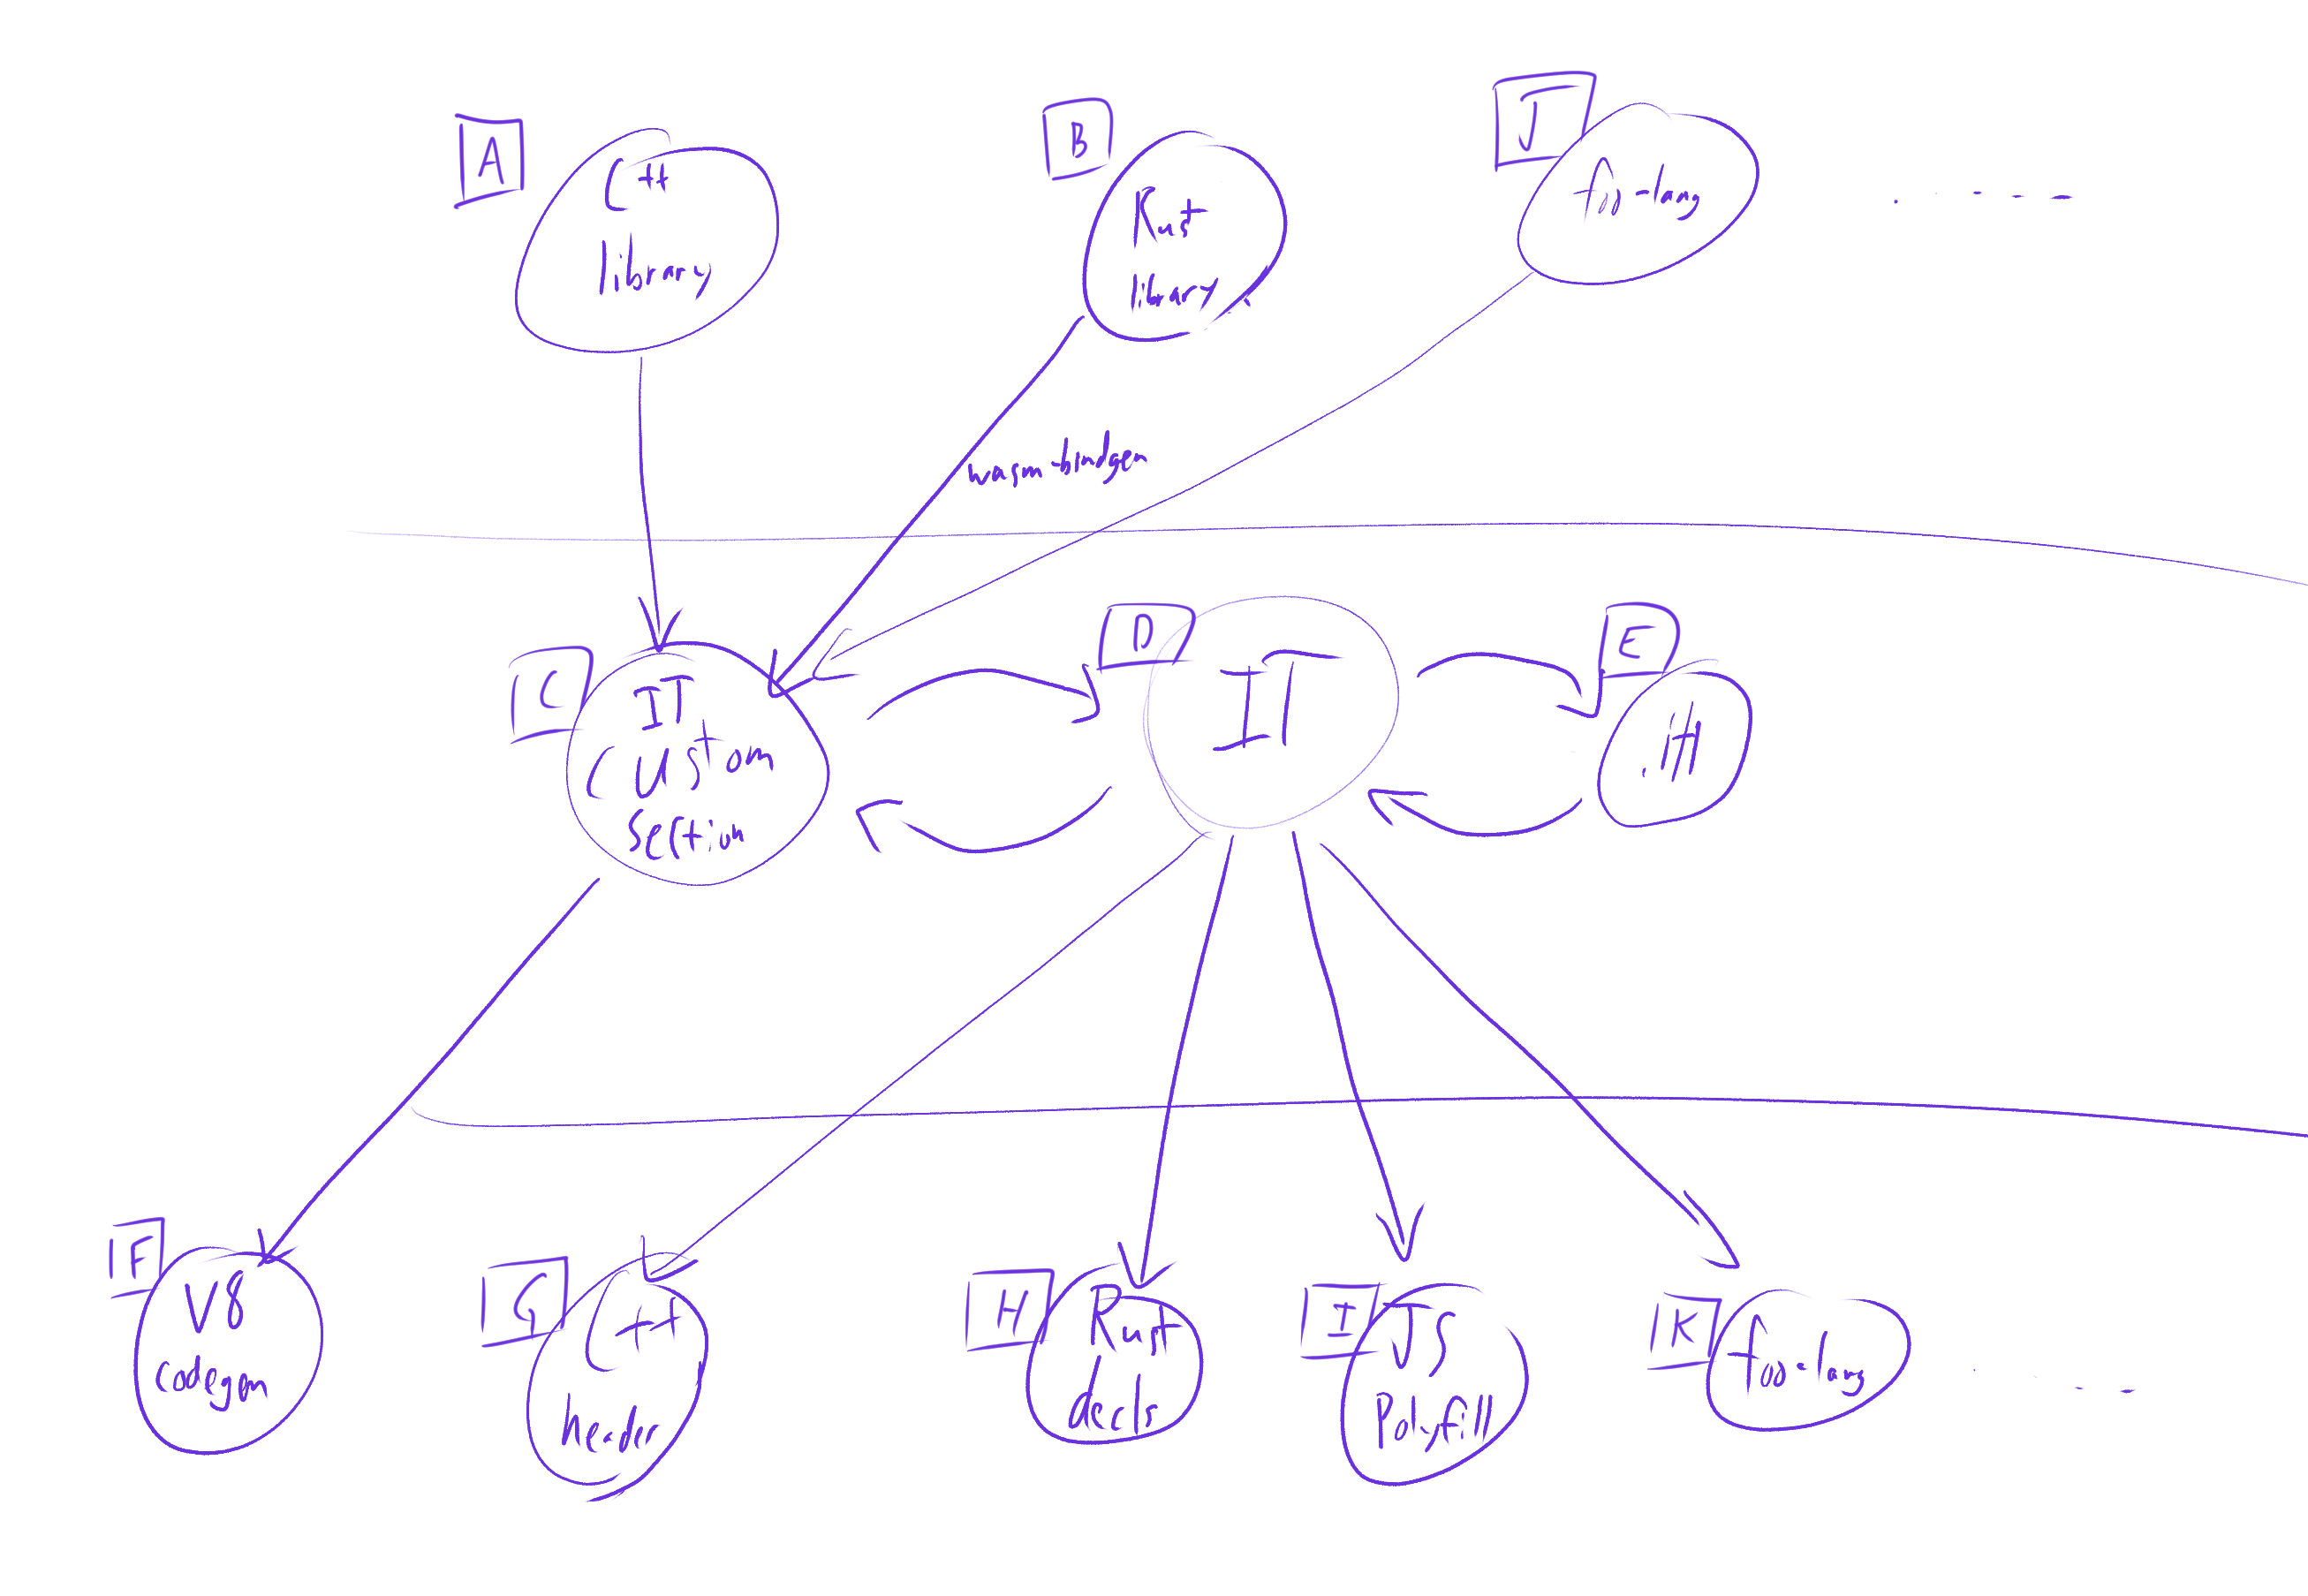 A
C++
library
B
Rust
library
J
foo-lang
wasm-bindgen
C
IT
Custom
Section
D
IT
E
F
V8
codegen
G
C++
header
H
Rust
decls
I
JS
Polyfill
K
foo-lang